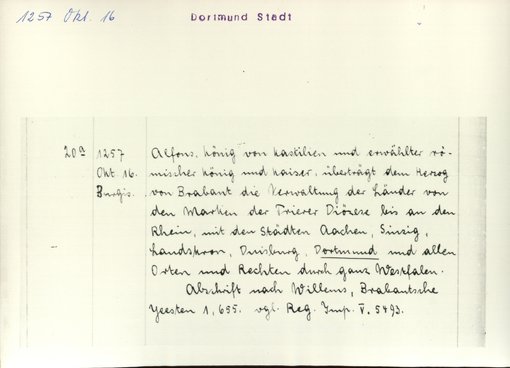 1257 Okt. 16 Dortmund Stadt
20a 1257 Alfons, König von Kastilien und erwählter rö-
Okt 16. mischer König und Kaiser, überträgt dem Herzog
Burgis. von Brabant die Verwaltung der Länder von
den Marken der Trierer Diözese bis an den
Rhein, mit den Städten Aachen, Sinzig,
Landskron, Duisburg, Dortmund und allen
Orten und Rechten durch ganz Westfalen.
Abschrift nach Willems, Brabantsche
Yeesten 1, 655. vgl. Reg. Imp. V. 5493.